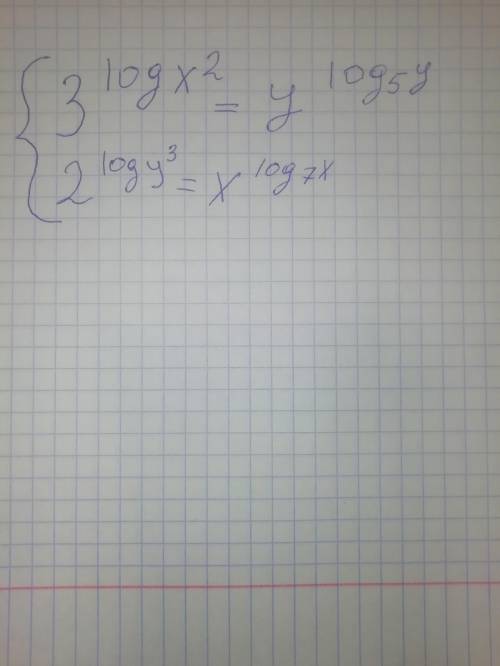 { 3^{log x^2} = y^{log_5 y}
2^{log y^3} = x^{log_7 x}